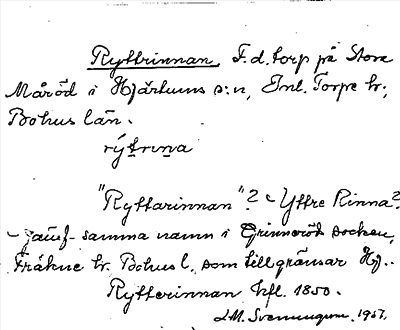 Ryttrinnan, F.d. torp på Stora
Måröd i Hjärtums s:n, Inl. Torpe hr,
Bohus län.
rýt̠rın̠a
"Ryttarinnan"? < Yttre Rinna?
– jämf. samma namn i Grinneröds socken,
Fräkne hr. Bohus l., som till gränsar Hj..
Rytterinnan kfl. 1850.